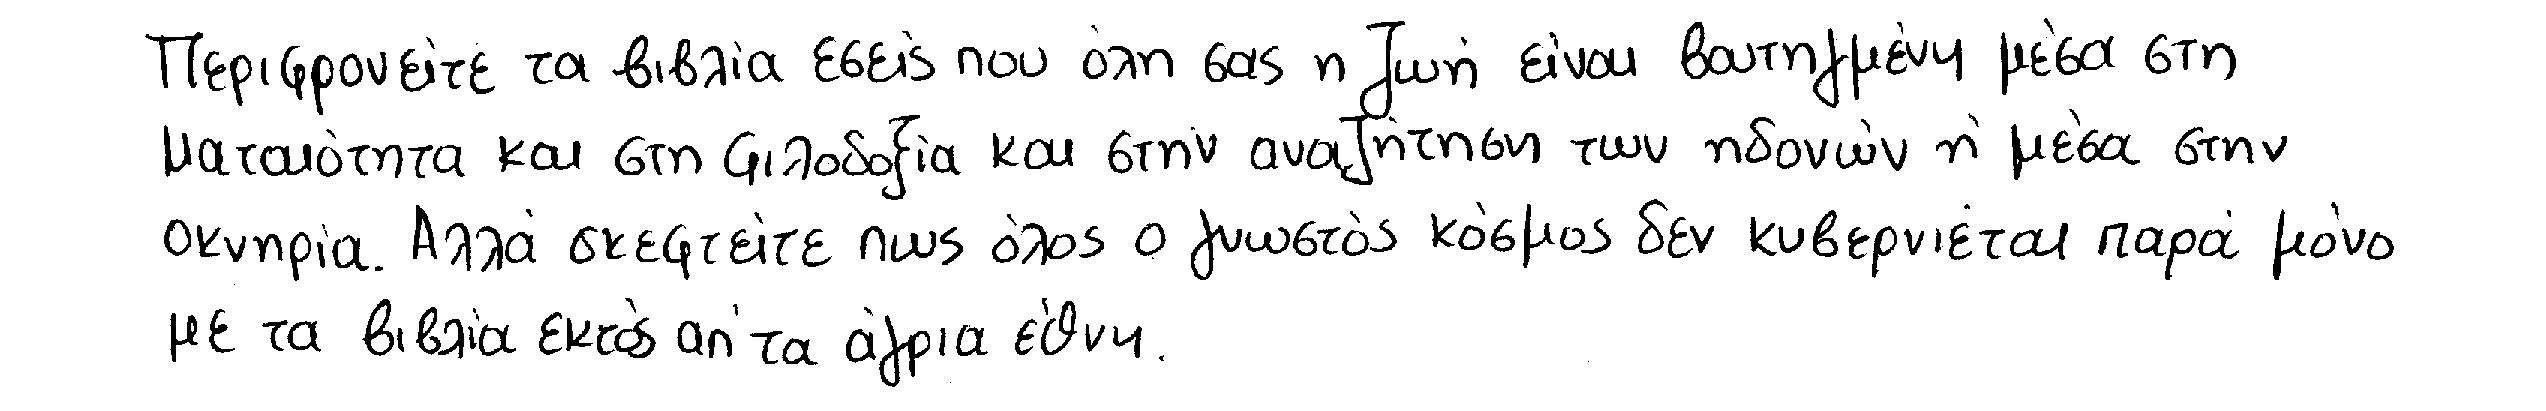 Περιφρονείτε τα βιβλία εσείς που όλη σας η ζωή είναι βουτηγμένη μέσα στη
ματαιότητα και στη φιλοδοξία και στην αναζήτηση των ηδονών ή μέσα στην
οκνηρία. Αλλά σκεφτείτε πως όλος ο γνωστός κόσμος δεν κυβερνιέται παρά μόνο
με τα βιβλία εκτός απ' τα άγρια έθνη.